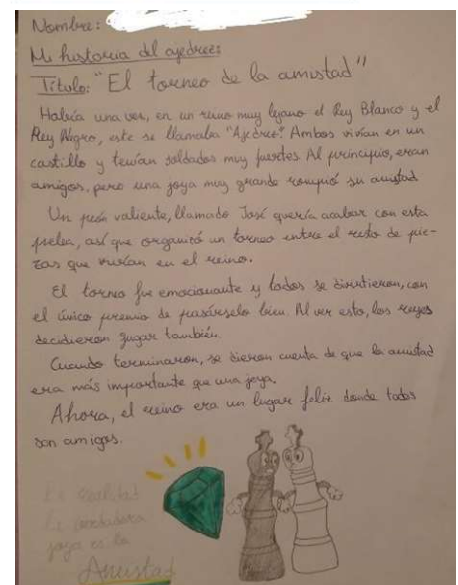 Nombre:
Mi historia del ajedrez:
Título: "El torneo de la amistad"
Había una vez, en un reino muy lejano el Rey Blanco y el
Rey Negro, este se llamaba "Ajedrez". Ambos vivían en un
castillo y tenían soldados muy fuertes. Al principio, eran
amigos, pero una joya muy grande rompió su amistad
Un peón valiente, llamado José quería acabar con esta
pelea, así que organizó un torneo entre el resto de pie-
zas que vivían en el reino.
El torneo fue emocionante y todos se divirtieron, con
el único premio de pasárselo bien. Al ver esto, los reyes
decidieron jugar también.
Cuando terminaron, se dieron cuenta de que la amistad
era más importante que una joya.
Ahora, el reino era un lugar feliz donde todos
son amigos.
La realidad
La verdadera
joya es la
Amistad